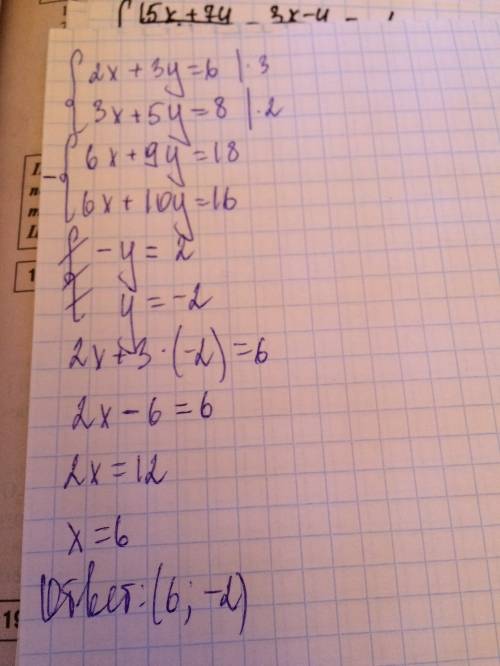 15x + 7y 3x - y
2x + 3y = 6 | · 3
3x + 5y = 8 | · 2
- 6x + 9y = 18
6x + 10y = 16
- y = 2
y = -2
2x + 3 · (-2) = 6
2x - 6 = 6
2x = 12
x = 6
Ответ: (6; -2)
19